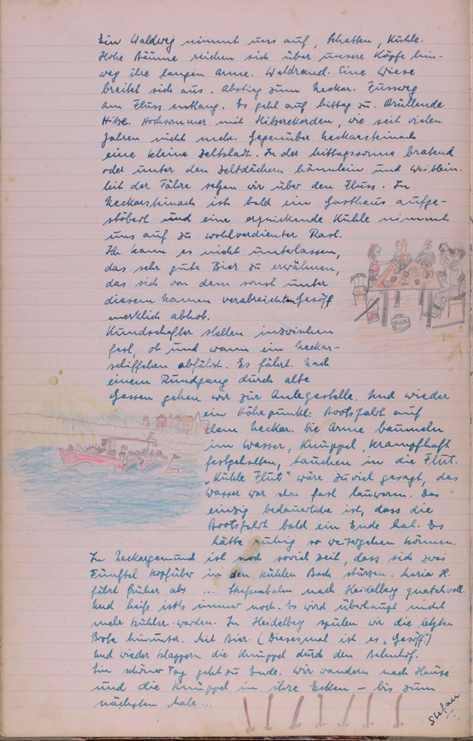 Ein Waldweg nimmt uns auf, Schatten, Kühle.
Hohe Bäume reichen sich über unsere Köpfe hin-
weg ihre langen Arme. Waldrand. Eine Wiese
breitet sich aus. Abstieg zum Neckar. Fussweg
am Fluss entlang. Es geht auf Mittag zu. Brüllende
Hitze. Hochsommer mit Hitzerekorden, wie seit vielen
Jahren nicht mehr. Gegenüber Neckarsteinach
eine kleine Zeltstadt. In der Mittagssonne bratend
oder unter den Zeltdächern Männlein und Weiblein.
Mit der Fähre setzen wir über den Fluss. In
Neckarsteinach ist bald ein Gasthaus aufge-
stöbert und eine erquickende Kühle nimmt
uns auf zu wohlverdienter Rast.
Ich kann es nicht unterlassen,
das sehr gute Bier zu erwähnen,
das sich von dem sonst unter
diesem Namen verabreichten Gesöff
merklich abhob.
Kundschafter stellen inzwischen
fest, ob und wann ein Neckar-
schiffchen abfährt. Es fährt. Nach
einem Rundgang durch alte
Gassen gehen wir zur Anlegestelle. Und wieder
ein Höhepunkt: Bootsfahrt auf
dem Neckar. Die Arme baumeln
im Wasser, Knüppel, krampfhaft
festgehalten, tauchen in die Flut.
„Kühle Flut" wäre zuviel gesagt, das
Wasser war schon fast lauwarm. Das
einzig bedauerliche ist, dass die
Bootsfahrt bald ein Ende hat. Es
hätte ruhig so weitergehen können.
In Neckargemünd ist noch soviel Zeit, dass sich zwei
Fünftel kopfüber in den kühlen Bach stürzen. Maria H.
fährt früher ab ... nach Heidelberg
Und heiß ist's immer noch. Es wird überhaupt nicht
mehr kühler werden. In Heidelberg spülen wir die letzten
Brote hinunter. Mit Bier. (Diesesmal ist es „Gesöff")
Und wieder klappern die Knüppel durch den Bahnhof.
Ein schöner Tag geht zu Ende. Wir wandern nach Hause
und die Knüppel in ihre Ecken – bis zum
nächsten Male ...
Stefan